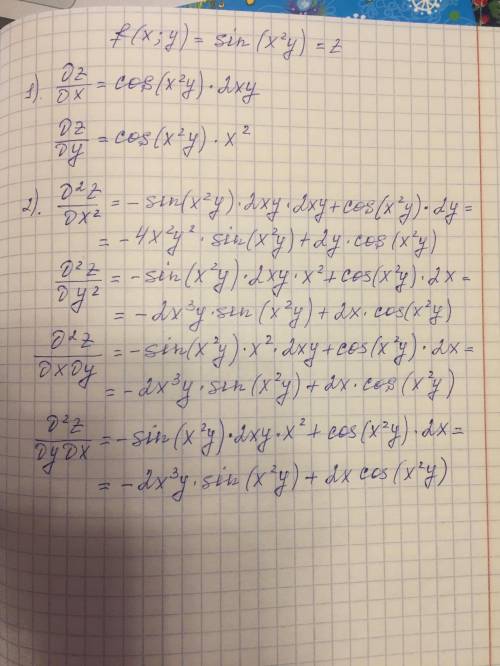 f(x;y) = sin(x²y) = z
1). ∂z/∂x = cos(x²y)·2xy
∂z/∂y = cos(x²y)·x²
2). ∂²z/∂x² = -sin(x²y)·2xy·2xy+cos(x²y)·2y =
= -4x²y²·sin(x²y)+2y·cos(x²y)
∂²z/∂y² = -sin(x²y)·2xy·x²+cos(x²y)·2x =
= -2x³y·sin(x²y)+2x·cos(x²y)
∂²z/∂x∂y = -sin(x²y)·x²·2xy+cos(x²y)·2x =
= -2x³y·sin(x²y)+2x·cos(x²y)
∂²z/∂y∂x = -sin(x²y)·2xy·x²+cos(x²y)·2x =
= -2x³y·sin(x²y)+2x cos(x²y)